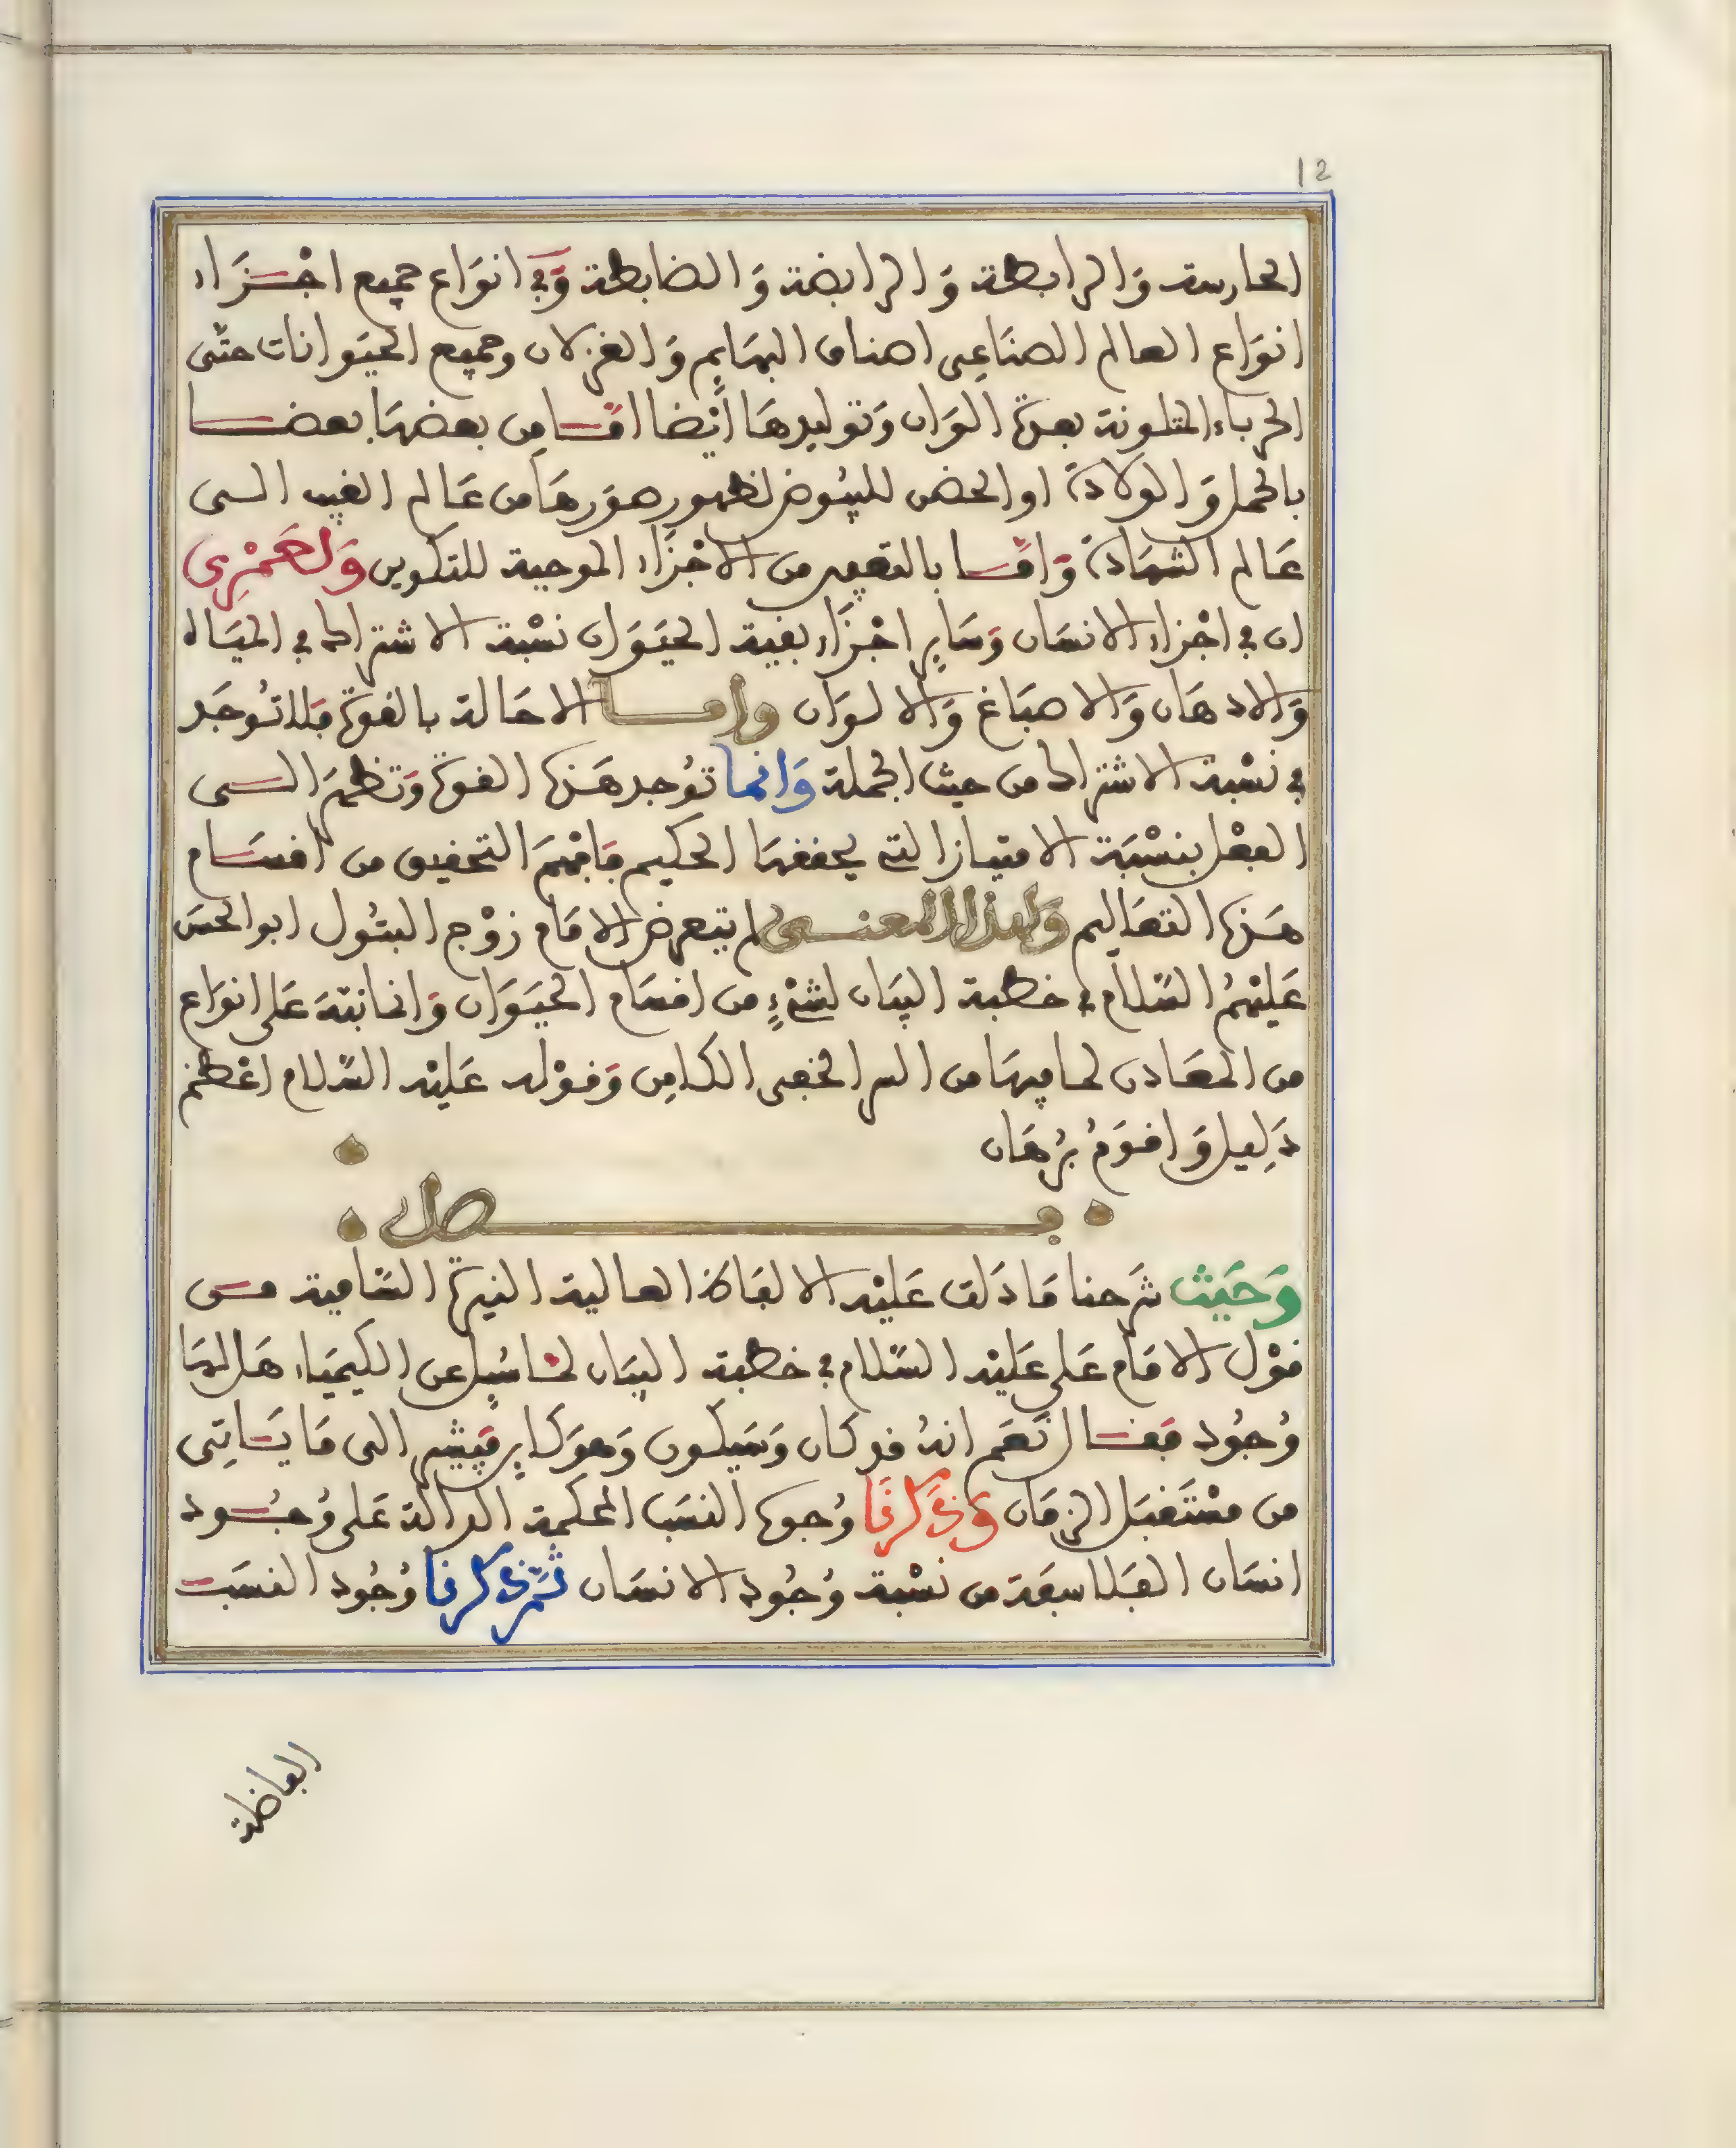 12
الحارسة وَالرابطة وَالرابضة وَالضابطة وَفي انوَاع جميع اجْزَاء
انوَاع العالم الصنَاعِى اصناف البهَايِم وَالغزلان وجميع الحيَوانات حتّى
الحرباء المتلونة بعدة الوَان وَتوليدهَا أيْضا امّا من بعضهَا بعضا
بالحمل وَالولادة او الحضن للبيُوض لظهور صوَرهَا من عَالم الغيب الى
عَالم الشهَادة وَامّا بالتعفين من الاجْزَاء الموجبة للتكوين وَلعَمْرِى
ان في اجْزاء الانسَان وَسَايِر اجْزَاء بقية الحيَوَان نسْبة الاشتراك في الميَاه
وَالادهَان وَالاصبَاغ وَالالوَان وامــا الاحَالة بالقوة فَلا تُوجَد
في نسْبة الاشتراك من حيث الجملة وَانما تُوجد هَذه القوة وَتظهَر الى
الفعْل بنسْبَة الامتيَاز التي يحققهَا الحكيم فَافْهَم التحقيق من اقسَام
هَذه التعَاليم وَلهذا المعنــى لم يتعرض الامَام زوْج البتُول ابو الحسَن
عَليْهمُ السّلام في خطبة البيَان لشيْءٍ من اقسَام الحيَوَان وَانما نبّهَ عَلى انوَاع
من المعَادن لما فيهَا من السر الخفى الكامِن وَقوْله عَليْه السّلام اعْظم
دَلِيل وَاقوَمُ بُرْهَان
فــصل
وَحَيث شرَحنا مَا دَلت عَليْه الالفاظ العالية النيرة السّامية من
قوْل الامَام عَلى عَليْه السّلام في خطبة البيَان لما سُيِل عن الكيميَاء هَل لهَا
وُجُود فقَال نَعَم انهُ قد كان وَسَيكون وَهوَ كاين فيشير الى مَا يَاتِى
من مسْتَقبَل الزمَان وَذكرنا وُجوه النسَب المحكمة الدالة عَلى وُجُود
انسَان الفَلاسفَة من نسْبة وُجُود الانسَان ثمّ ذكرنا وُجُود النسَب
الفاضلة